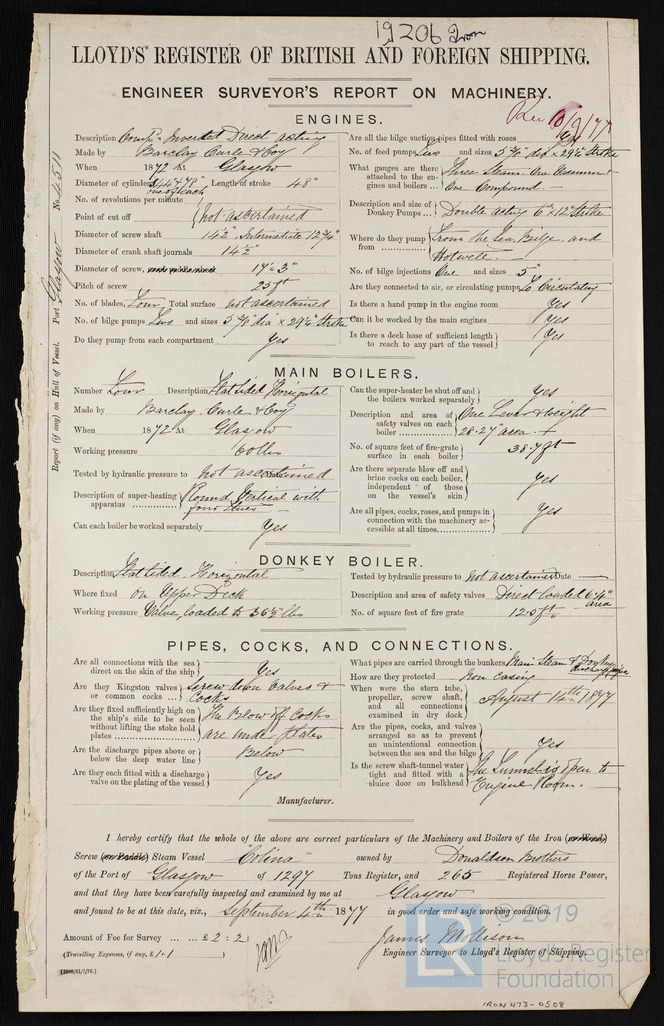 19206 Iron
LLOYD'S REGISTER OF BRITISH AND FOREIGN SHIPPING.
ENGINEER SURVEYOR'S REPORT ON MACHINERY.
Rec 10/9/77
Report (if any) on Hull of Vessel. Port Glasgow No. 4511
ENGINES.
Description Comp. Inverted Direct acting
Made by Barclay Curle & Coy
When 1872 At Glasgow
Diameter of cylinders 44" & 78" Length of stroke 48"
one of each
No. of revolutions per minute
Point of cut off not ascertained
Diameter of screw shaft 14½" Intermediate 12¾"
Diameter of crank shaft journals 14½"
Diameter of screw, 17'. 3"
Pitch of screw 25 ft
No. of blades, Four. Total surface not ascertained
No. of bilge pumps Two and sizes dia x Stroke
Do they pump from each compartment Yes
Are all the bilge suction pipes fitted with roses Yes
No. of feed pumps Two and sizes dia x Stroke
What gauges are there attached to the engines and boilers Three Steam. One Vacuum
One Compound
Description and size of Donkey Pumps Double acting 6" x 12" Stroke
Where do they pump from From the Sea, Bilge, and
Hotwell
No. of bilge injections One and sizes 5"
Are they connected to air, or circulating pumps To Circulating
Is there a hand pump in the engine room Yes
Can it be worked by the main engines Yes
Is there a deck hose of sufficient length to reach to any part of the vessel Yes
MAIN BOILERS.
Number Four Description Flat sided Horizontal
Made by Barclay. Curle & Coy
When 1872 At Glasgow
Working pressure 60 lbs
Tested by hydraulic pressure to not ascertained
Description of super-heating apparatus Round Vertical with
four flues
Can each boiler be worked separately Yes
Can the super-heater be shut off and the boilers worked separately Yes
Description and area of safety valves on each boiler One Lever & weight
28.27" area
No. of square feet of fire-grate surface in each boiler 38.7 ft
Are there separate blow off and brine cocks on each boiler, independent of those on the vessel's skin Yes
Are all pipes, cocks, roses, and pumps in connection with the machinery accessible at all times Yes
DONKEY BOILER.
Description Flat sided. Horizontal
Where fixed on Upper Deck
Working pressure Valve, loaded to 36½ lbs
Tested by hydraulic pressure to not ascertained Date
Description and area of safety valves Direct loaded area
No. of square feet of fire grate 12.5 ft
PIPES, COCKS, AND CONNECTIONS.
Are all connections with the sea direct on the skin of the ship Yes
Are they Kingston valves or common cocks Screw down Valves &
Cocks
Are they fixed sufficiently high on the ship's side to be seen without lifting the stoke hold plates The Blow off Cocks
are under Plates
Are the discharge pipes above or below the deep water line Below
Are they each fitted with a discharge valve on the plating of the vessel Yes
What pipes are carried through the bunkers Main Steam & Donkey
discharge pipe
How are they protected Iron casing
When were the stern tube, propeller, screw shaft, and all connections examined in dry dock August 14th 1877
Are the pipes, cocks, and valves arranged so as to prevent an unintentional connection between the sea and the bilge Yes
Is the screw shaft-tunnel water tight and fitted with a sluice door on bulkhead The Tunnel is open to
Engine Room.
Manufacturer.
I hereby certify that the whole of the above are correct particulars of the Machinery and Boilers of the Iron (or Wood)
Screw (or Paddle) Steam Vessel "Colina" owned by Donaldson Brothers
of the Port of Glasgow of 1297 Tons Register, and 265 Registered Horse Power,
and that they have been carefully inspected and examined by me at Glasgow
and found to be at this date, viz., September 4th 1877 in good order and safe working condition.
Amount of Fee for Survey £2 : 2 :
James Mollison
(Travelling Expenses, if any, £1.1 )
Engineer Surveyor to Lloyd's Register of Shipping.
© 2019
LR Lloyd's Register
Foundation
IRON 473-0508